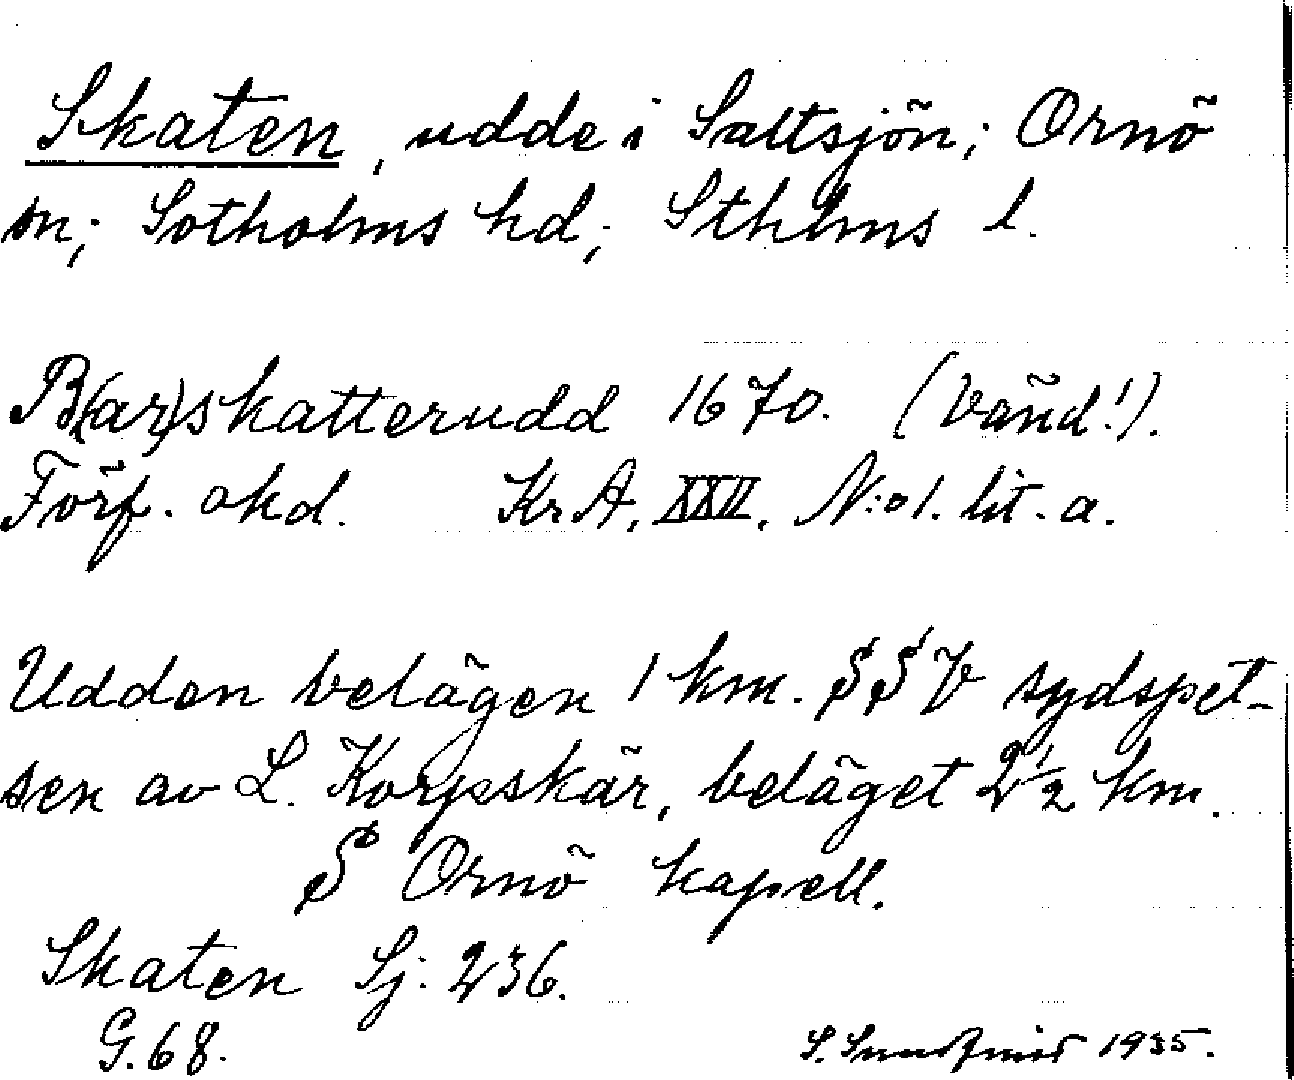 Skaten, udde i Saltsjön; Ornö
sn; Sotholms hd; Sthlms l.
B(ar)skatterudd 1670. (Vänd!).
Förf. okd. KrA, XXVI, N:o 1. lit. a.
Udden belägen 1 km. SSV sydspet-
sen av L. Korpskär, beläget 2 1/2 km.
S Ornö kapell.
Skaten Sj: 236.
G. 68.
S. 1935.